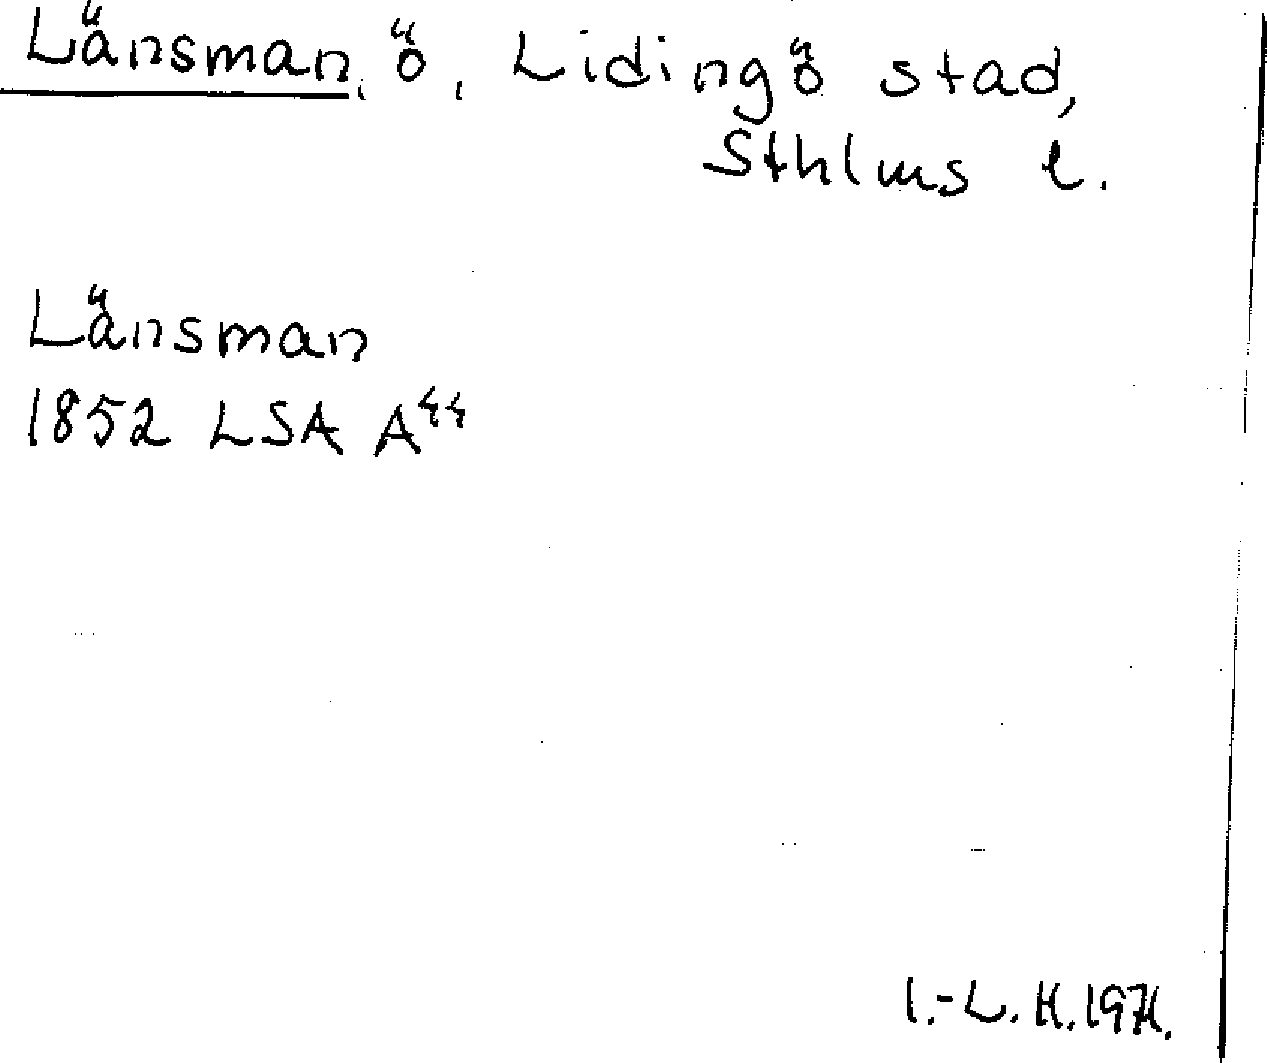 Länsman, ö, Lidingö stad,
Sthlms l.
Länsman
1852 LSA A44
I.-L. H. 1971.